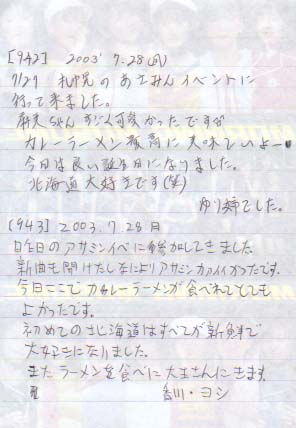 [942] 2003 7.28(月)
7/27 札幌のあさみんイベントに
行って来ました。
麻美ちゃん すごく可愛かったですが
カレーラーメン最高に美味しいよー
今日は良い誕生日になりました。
北海道大好きです(笑)
ゆり姉でした。
[943] 2003.7.28 月
昨日のアサミンイベに参加してきました
新曲も聞けたしなによりアサミンカワイイかったです。
今日ここでカレーラーメンが食べれてとても
よかったです。
初めての北海道はすべてが新鮮で
大好きになりました。
またラーメンを食べに大王さんにきます。
香川・ヨシ